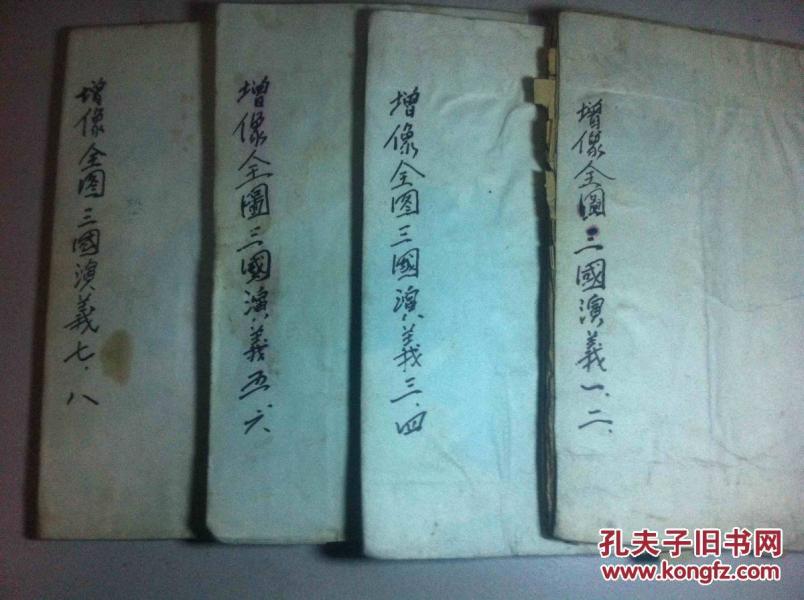 增像全圖三國演義一.二.
增像全图三國演義三.四
增像全圖三國演義五.六
增像全图三國演義七.八
孔夫子旧书网
www.kongfz.com